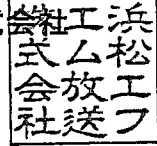 浜松エフ
エム放送
会社式会社